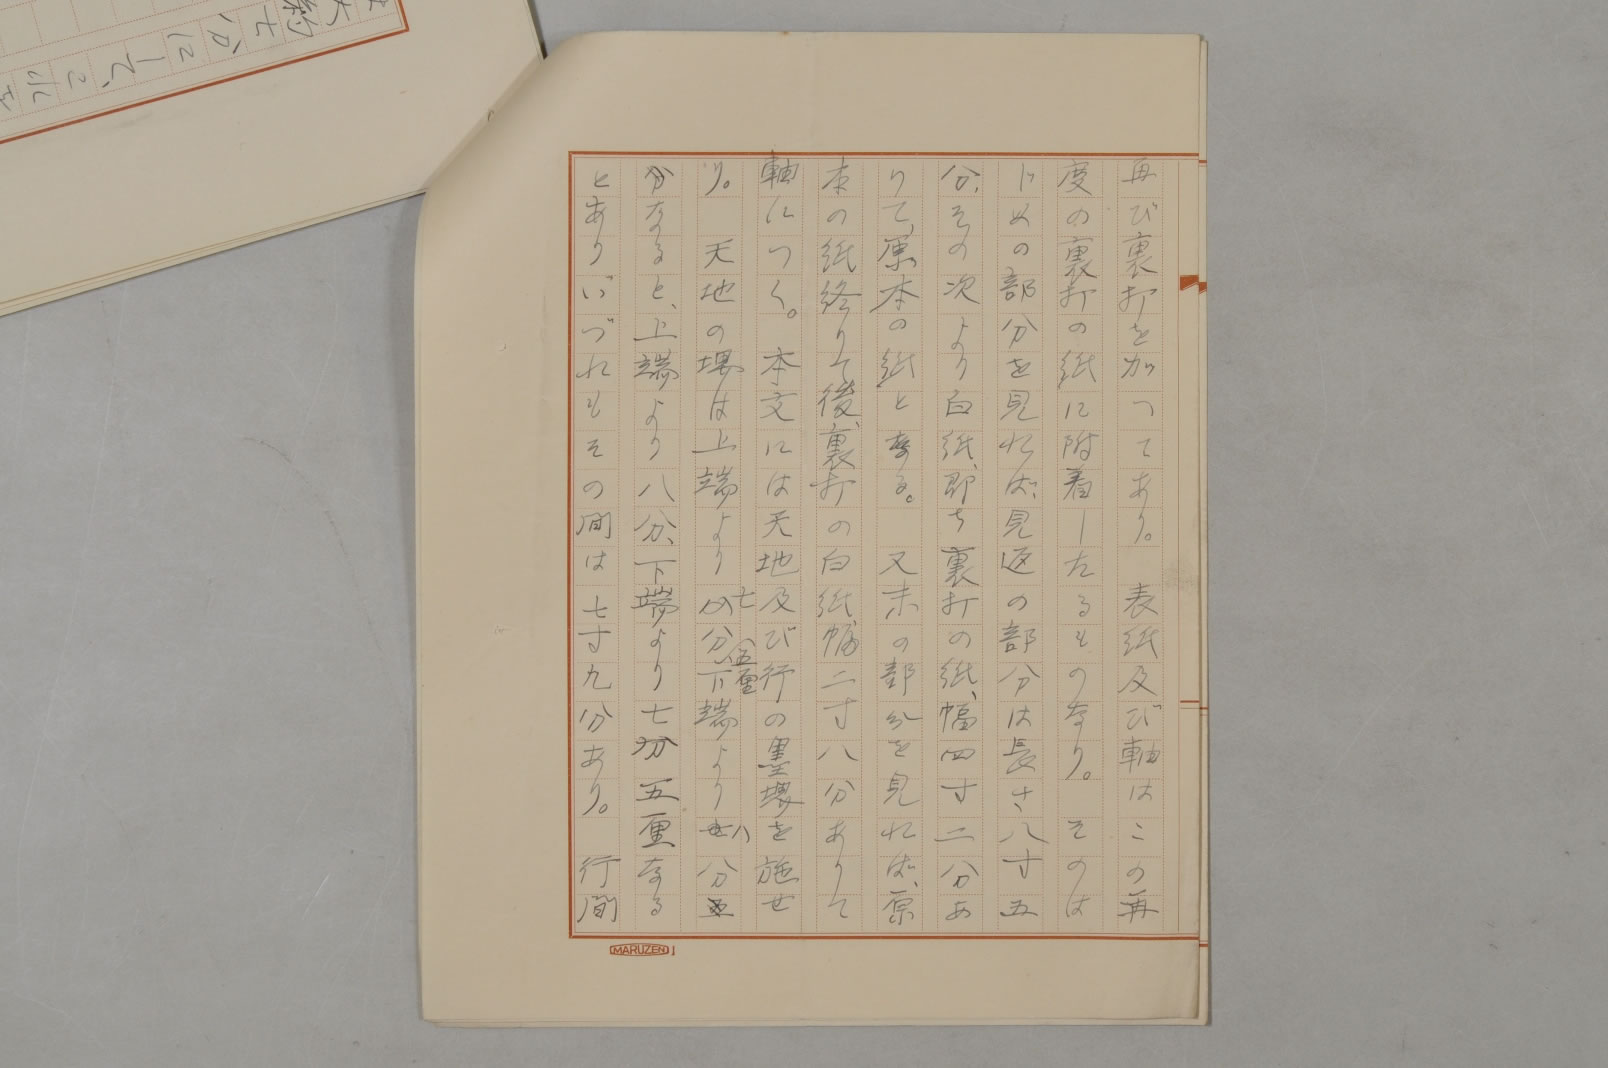 再び裏打を加つてあり。　表紙及び軸はこの再
度の裏打の紙に附着したるものなり。　そのは
じめの部分を見れば、見返の部分は長さ八寸五
分、その次より白紙、即ち裏打の紙、幅四寸二分あ
りて、原本の紙と
なる。　又末の部分を見れば、原
本の紙終りて後、裏打の白紙幅二寸八分ありて
軸につく。　本文には天地及び行の墨堺を施せ
り。　天地の堺は上端より七分五厘、下端より八分
分なると、上端より八分、下端より七分五厘なる
とありいづれもその間は七寸九分あり。　行間
MARUZEN
約七分にして、これ